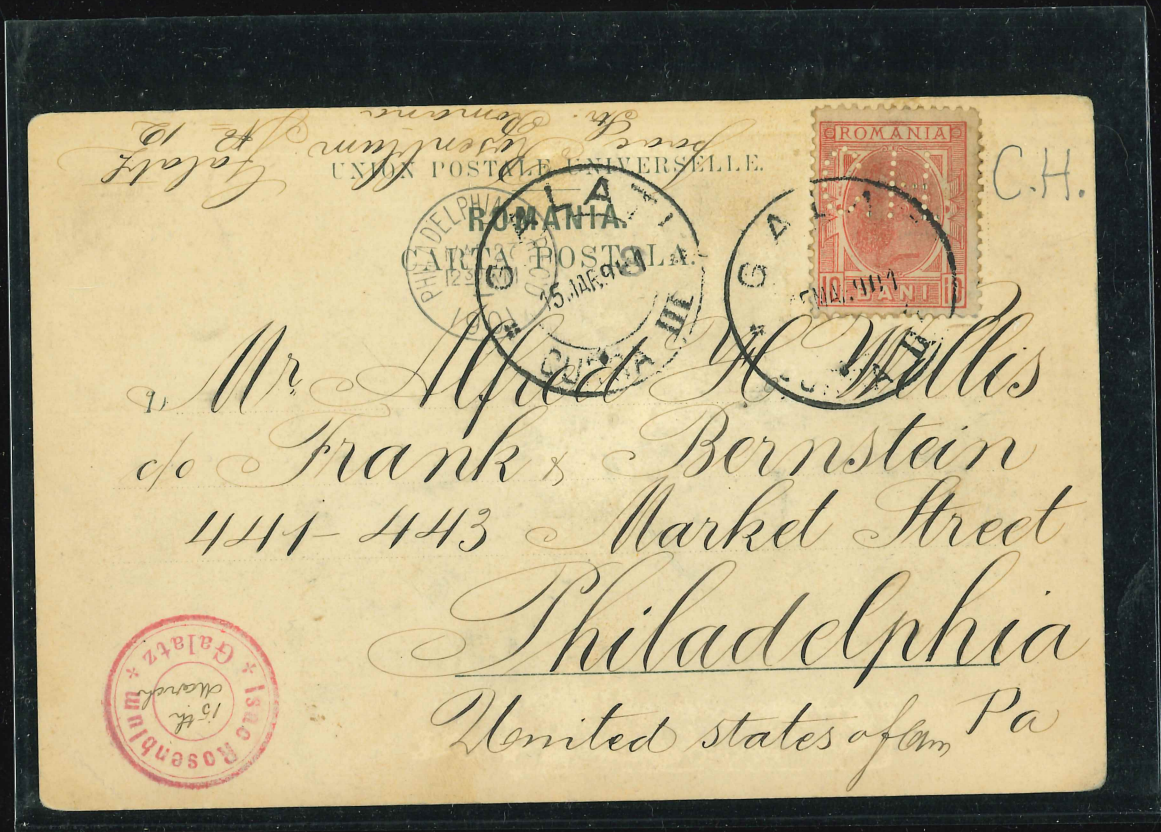 Isac Rosenblum
Str. Romana
№ 12
Galatz
UNION POSTALE UNIVERSELLE.
ROMANIA.
CARTA POSTALA.
ROMANIA
10 BANI 10
C.H.
PHILADELPHIA
1901
GALATI
15 MAR 901
CURSA III
GALATI
MAR 901
Mr. Alfred H. Willis
c/o Frank & Bernstein
441-443 Market Street
Philadelphia
Pa
United states of Am
Isac Rosenblum
* Galatz *
15th
March